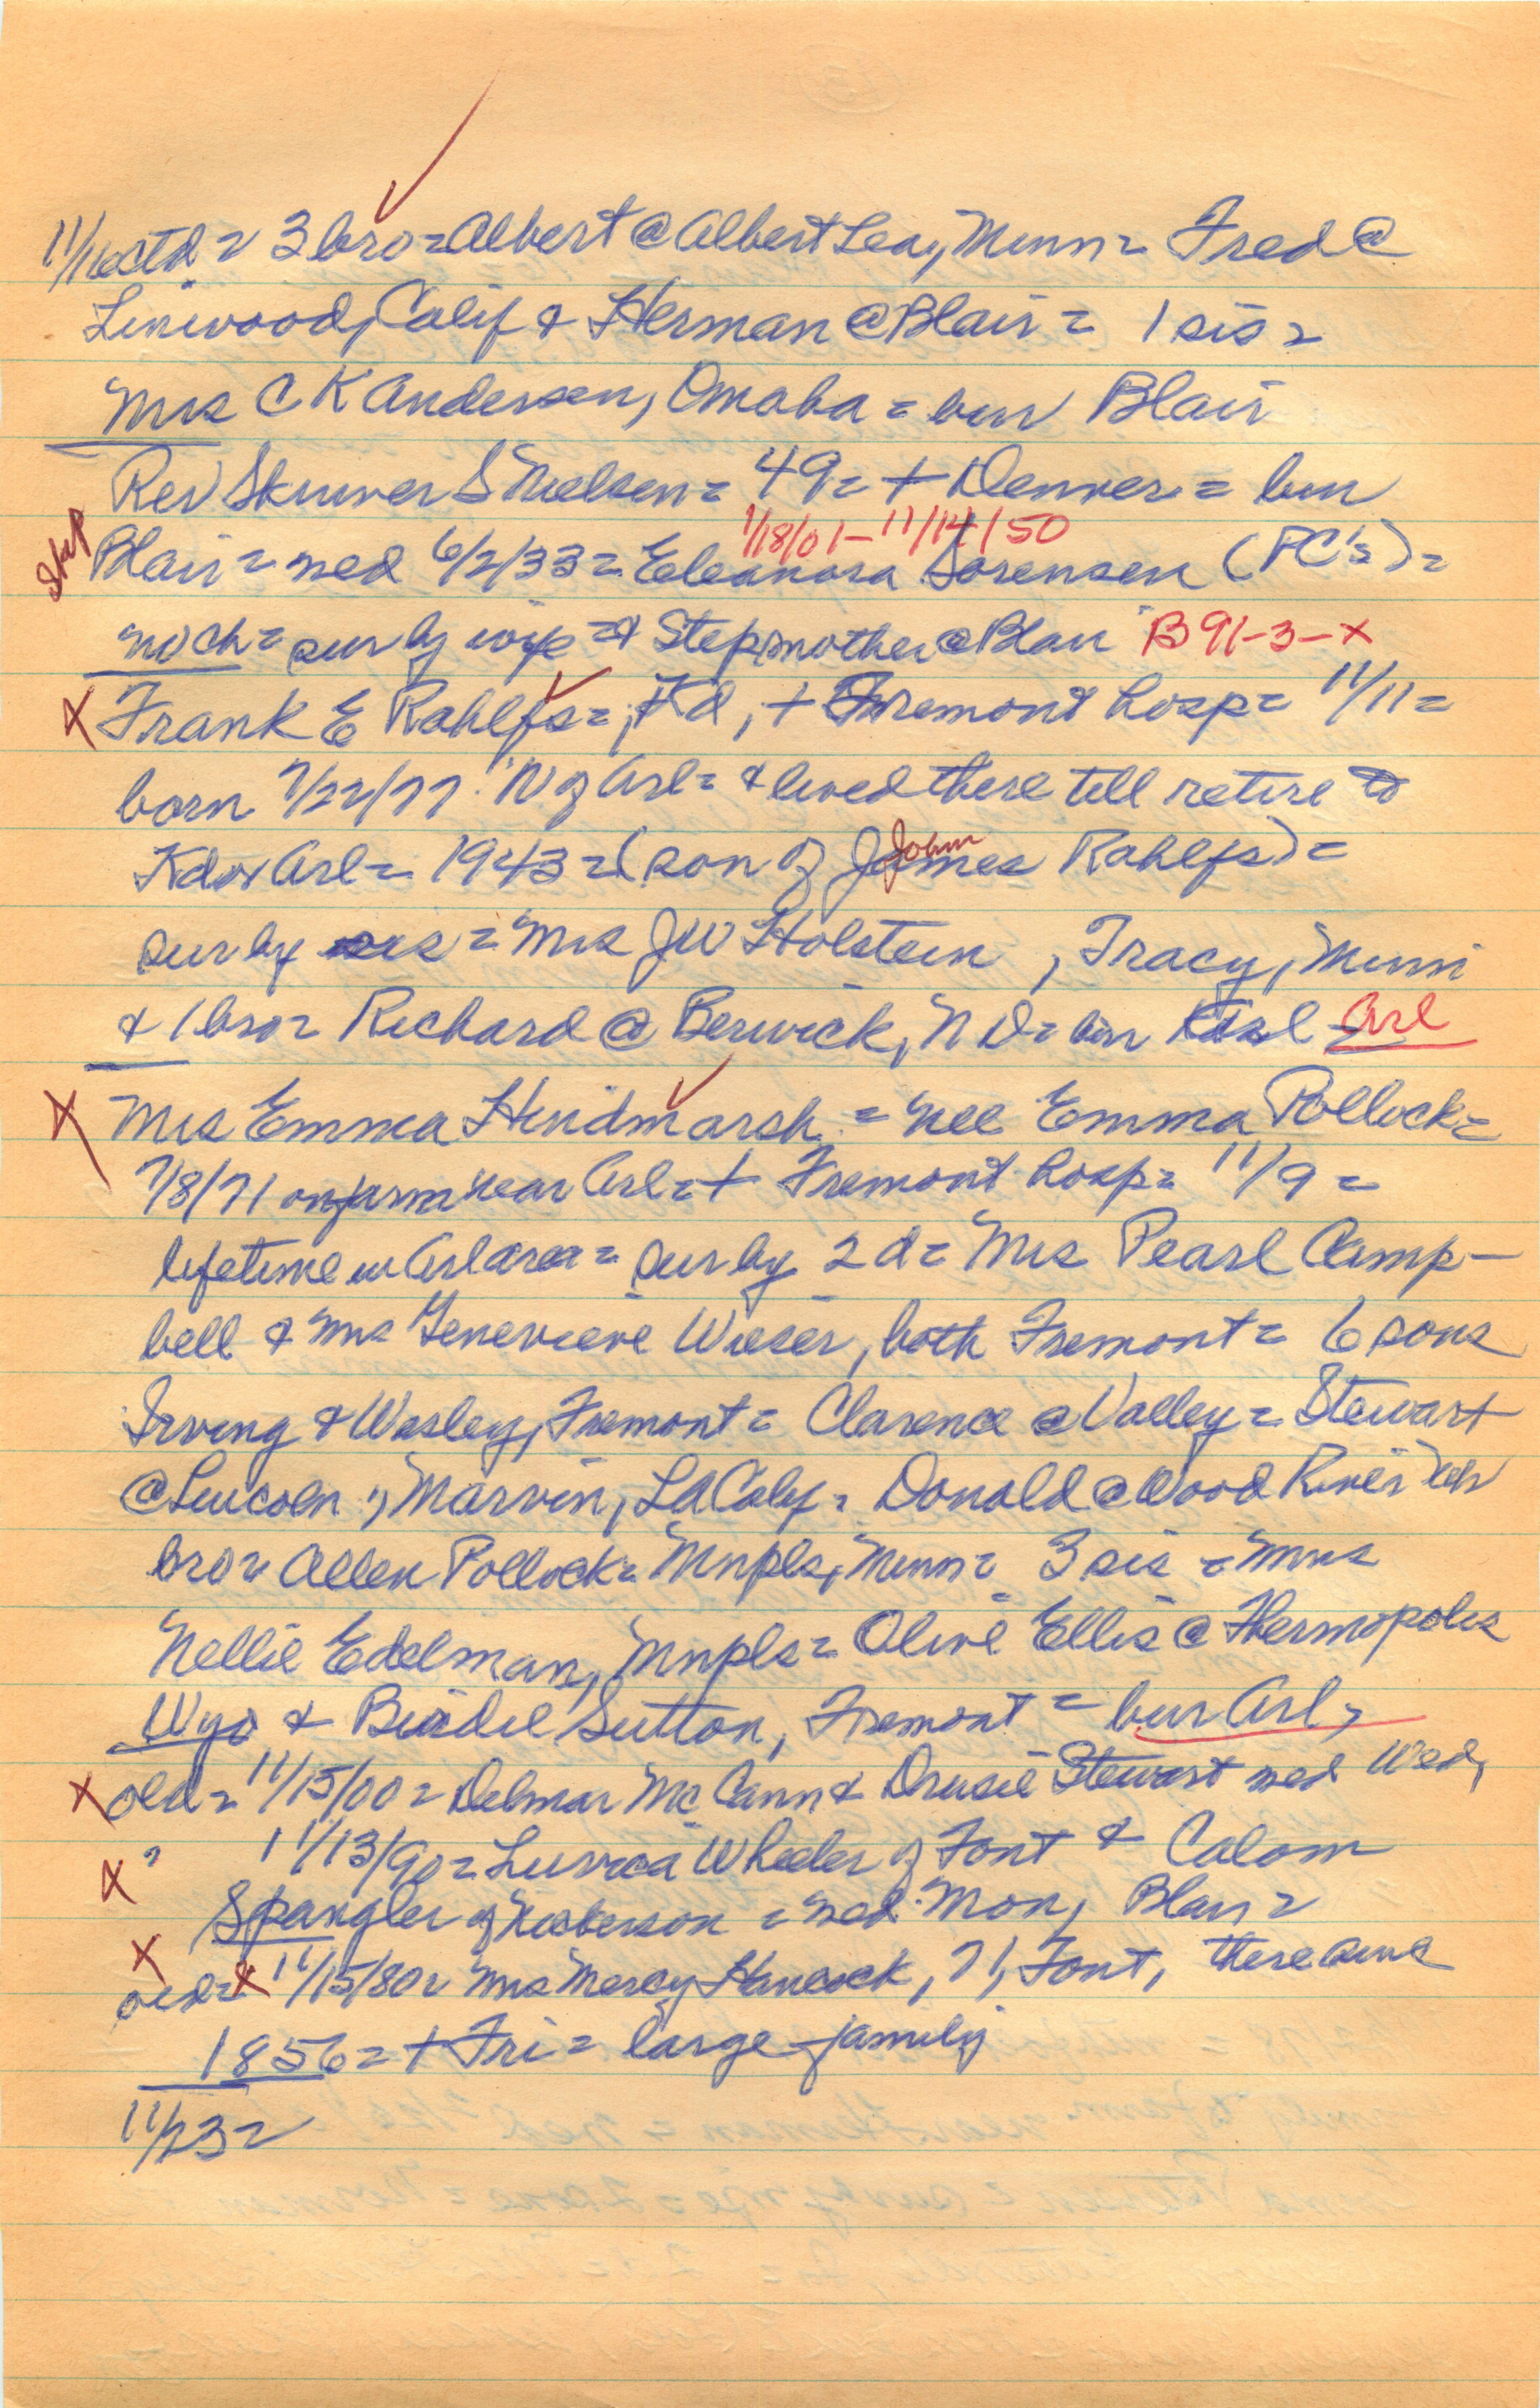 11/16 ctd = 3 bro = Albert @ Albert Lea, Minn = Fred @
Linwood, Calif & Herman @ Blair = 1 sis =
Mrs C K Andersen, Omaha = bur Blair
Rev Skriver S Nielsen = 49 = + Denver = bur
1/18/01 - 11/14/50
skip
Blair = med 6/2/33 = Eleanora Sorensen (PC's) =
no ch = sur by wife = & Stepmother @ Blair B 91-3-X
X Frank E Rahlfs =, Kd, + Fremont hosp = 11/11 =
born 7/22/77 N of Arl = & lived there till retire to
Kd or Arl = 1943 = (son of James John Rahlfs) =
sur by sis = Mrs J W Holstein, Tracy, Minn
& 1 bro = Richard @ Berwick, N D = bur Arl
X Mrs Emma Hindmarsh = nee Emma Pollock =
7/8/71 on farm near Arl = + Fremont hosp = 11/9 =
lifetime in Arl area = sur by 2 d = Mrs Pearl Camp-
bell & Mrs Genevieve Wieser, both Fremont = 6 sons
Irving & Wesley, Fremont = Clarence @ Valley = Stewart
@ Lincoln, Marvin, LA Calif = Donald @ Wood River Neb
bro = Allen Pollock = Mnpls, Minn = 3 sis = Mrs
Nellie Edelman, Mnpls = Olive Ellis @ Thermopolis
Wyo & Birdie Sutton, Fremont = bur Arl,
X old = 11/15/00 = Delmar McCann & Drusie Stewart med Wed,
X " 11/13/90 = Luvica Wheeler of Font & Calom
Spangler of Nickerson = med Mon, Blair =
X old = X 11/15/80 = Mrs Mercy Hancock, 71, Font, there since
1856 = + Fri = large family
11/23 =